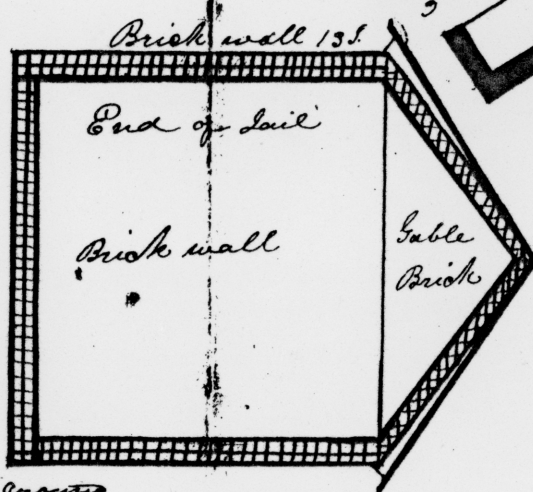 Brick wall 13 f.
End of Jail
Brick wall
Gable
Brick
ground